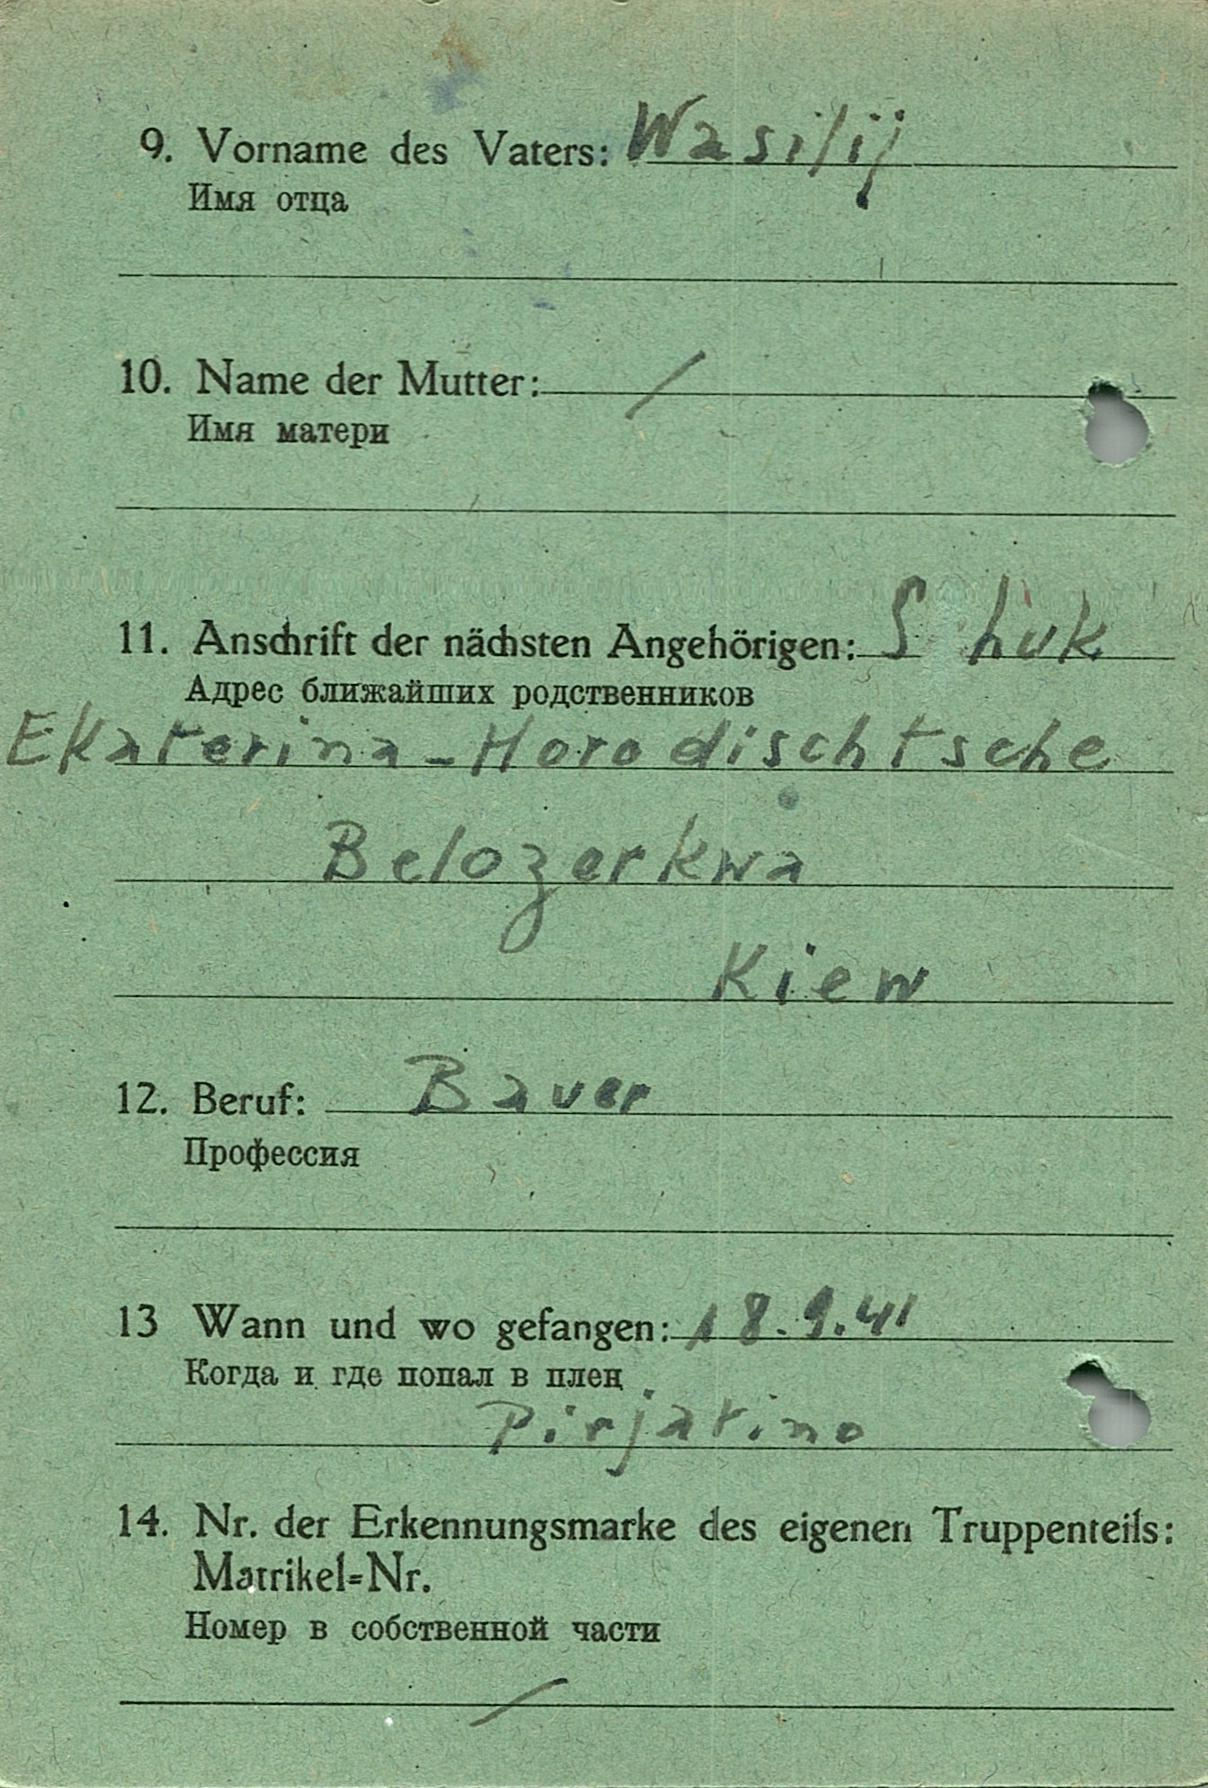 9. Vorname des Vaters: Wasilij
Имя отца
10. Name der Mutter: /
Имя матери
11. Anschrift der nächsten Angehörigen: S huk
Адрес ближайших родственников
Ekaterina - Horodischtsche
Belozerkwa
Kiew
12. Beruf: Bauer
Профессия
13 Wann und wo gefangen: 18.9.41
Когда и где попал в плен
Pirjatino
14. Nr. der Erkennungsmarke des eigenen Truppenteils:
Matrikel=Nr.
Номер в собственной части
/